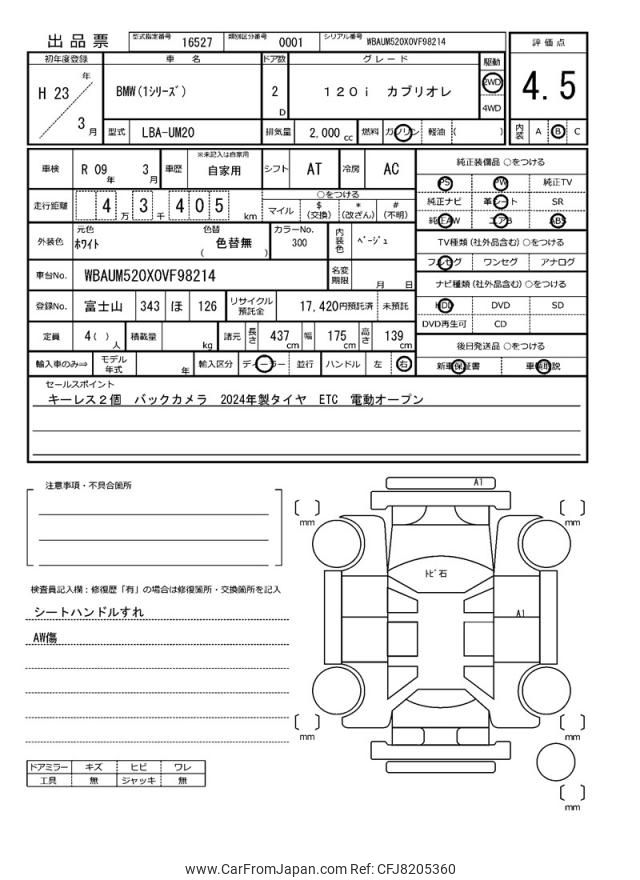 出品票
型式指定番号 16527 類別区分番号 0001 シリアル番号 WBAUM520X0VF98214
評価点
4.5
内装 A B C
初年度登録 車名 ドア数 グレード 駆動
H 23 年 3 月
BMW(1シリーズ) 2 D 120i カブリオレ 2WD 4WD
型式 LBA-UM20 排気量 2,000 cc 燃料 ガソリン 軽油 ( )
車検 R 09 年 3 月 車歴 ※未記入は自家用 自家用 シフト AT 冷房 AC
走行距離 4 万 3 千 4 0 5 km
○をつける
マイル $ (交換) * (改ざん) # (不明)
外装色 元色 ホワイト 色替 色替無 ( ) カラーNo. 300 内装色 ベージュ
車台No. WBAUM520X0VF98214 名変期限 月 日
登録No. 富士山 343 ほ 126 リサイクル預託金 17,420円預託済 未預託
定員 4( ) 人 積載量 kg 諸元 長さ 437 cm 幅 175 cm 高さ 139 cm
輸入車のみ⇒ モデル年式 年 輸入区分 ディーラー 並行 ハンドル 左 右
純正装備品 ○をつける
PS PW 純正TV
純正ナビ 革シート SR
純正AW エアB ABS
TV種類 (社外品含む) ○をつける
フルセグ ワンセグ アナログ
ナビ種類 (社外品含む) ○をつける
HDD DVD SD
DVD再生可 CD
後日発送品 ○をつける
新車保証書 車輌取説
セールスポイント
キーレス2個 バックカメラ 2024年製タイヤ ETC 電動オープン
注意事項・不具合箇所
検査員記入欄：修復歴「有」の場合は修復箇所・交換箇所を記入
シートハンドルすれ
AW傷
ドアミラー キズ ヒビ ワレ
工具 無 ジャッキ 無
A1
mm
mm
トビ石
A1
mm
mm
mm
www.CarFromJapan.com Ref: CFJ8205360